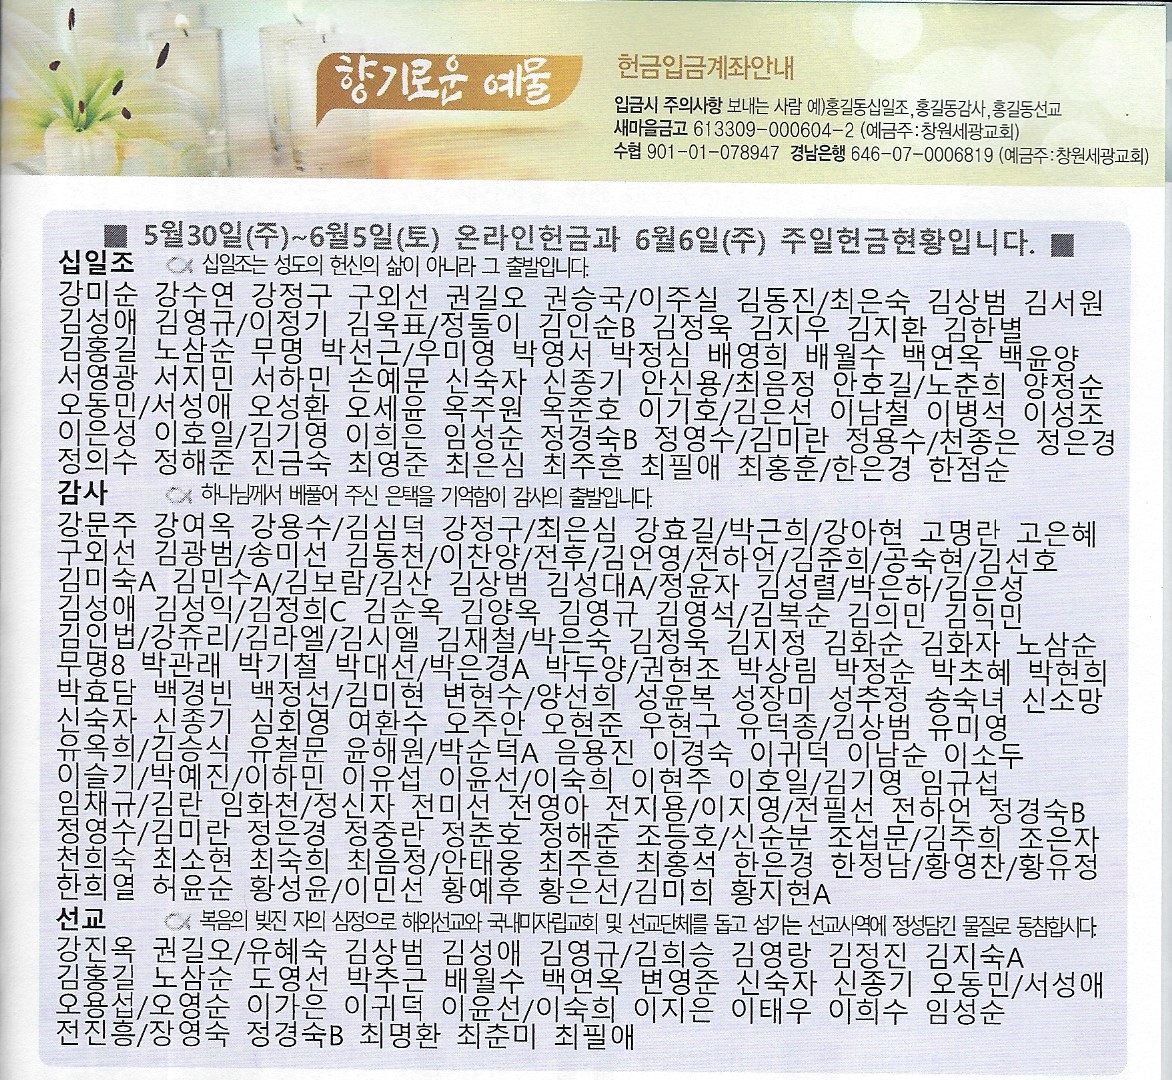 향기로운 예물
헌금입금계좌안내
입금시 주의사항 보내는 사람 예)홍길동십일조, 홍길동감사, 홍길동선교
새마을금고 613309-000604-2 (예금주:창원세광교회)
수협 901-01-078947 경남은행 646-07-0006819 (예금주:창원세광교회)
■ 5월30일(주)~6월5일(토) 온라인헌금과 6월6일(주) 주일헌금현황입니다. ■
십일조 십일조는 성도의 헌신의 삶이 아니라 그 출발입니다.
강미순 강수연 강정구 구외선 권길오 권승국/이주실 김동진/최은숙 김상범 김서원
김성애 김영규/이정기 김욱표/정둘이 김인순B 김정욱 김지우 김지환 김한별
김홍길 노삼순 무명 박선근/우미영 박영서 박정심 배영희 배월수 백연옥 백윤양
서영광 서지민 서하민 손예문 신숙자 신종기 안신용/최음정 안호길/노춘희 양정순
오동민/서성애 오성환 오세윤 옥주원 옥준호 이기호/김은선 이남철 이병석 이성조
이은성 이호일/김기영 이희은 임성순 정경숙B 정영수/김미란 정용수/천종은 정은경
정의수 정해준 진금숙 최영준 최은심 최주흔 최필애 최홍훈/한은경 한점순
감사 하나님께서 베풀어 주신 은택을 기억함이 감사의 출발입니다.
강문주 강여옥 강용수/김심덕 강정구/최은심 강효길/박근희/강아현 고명란 고은혜
구외선 김광범/송미선 김동천/이찬양/전후/김언영/전하언/김준희/공숙현/김선호
김미숙A 김민수A/김보람/김산 김상범 김성대A/정윤자 김성렬/박은하/김은성
김성애 김성익/김정희C 김순옥 김양옥 김영규 김영석/김복순 김의민 김익민
김인법/강쥬리/김라엘/김시엘 김재철/박은숙 김정욱 김지정 김화순 김화자 노삼순
무명8 박관래 박기철 박대선/박은경A 박두양/권현조 박상림 박정순 박초혜 박현희
박효담 백경빈 백정선/김미현 변현수/양선희 성윤복 성장미 성추정 송숙녀 신소망
신숙자 신종기 심회영 여환수 오주안 오현준 우현구 유덕종/김상범 유미영
유옥희/김승식 유철문 윤해원/박순덕A 음용진 이경숙 이귀덕 이남순 이소두
이슬기/박예진/이하민 이유섭 이윤선/이숙희 이현주 이호일/김기영 임규섭
임채규/김란 임화천/정신자 전미선 전영아 전지용/이지영/전필선 전하언 정경숙B
정영수/김미란 정은경 정중란 정춘호 정해준 조등호/신순분 조섭문/김주희 조은자
천희숙 최소현 최숙희 최음정/안태웅 최주흔 최홍석 한은경 한정남/황영찬/황유정
한희열 허윤순 황성윤/이민선 황예후 황은선/김미희 황지현A
선교 복음의 빚진 자의 심정으로 해외선교와 국내미자립교회 및 선교단체를 돕고 섬기는 선교사역에 정성담긴 물질로 동참합시다.
강진옥 권길오/유혜숙 김상범 김성애 김영규/김희승 김영랑 김정진 김지숙A
김홍길 노삼순 도영선 박추근 배월수 백연옥 변영준 신숙자 신종기 오동민/서성애
오용섭/오영순 이가은 이귀덕 이윤선/이숙희 이지은 이태우 이희수 임성순
전진흥/장영숙 정경숙B 최명환 최춘미 최필애